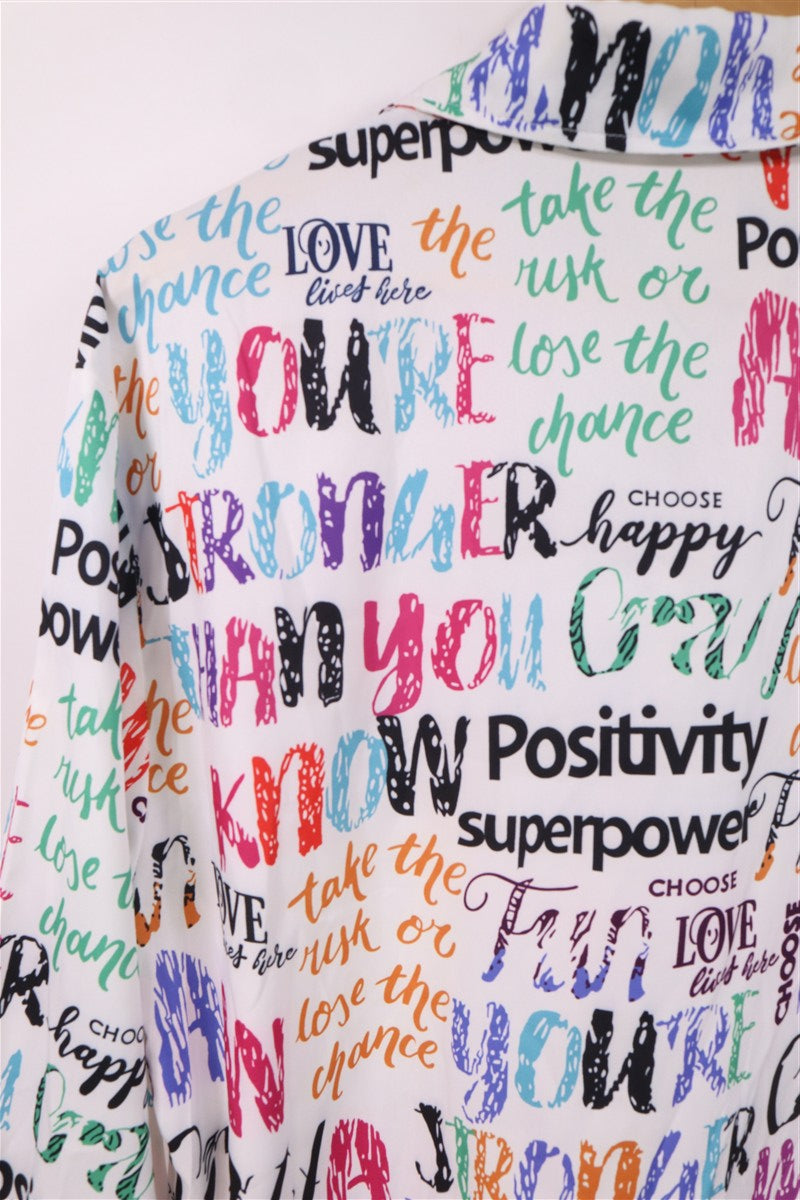 superpow
lose the
chance
LOVE
lives here
the
take the
risk or
lose the
chance
Po
YOU'RE
the
or
STRONGER
CHOOSE
happy
Pos
powe
THAN YOU
Crazy
KNOW
Positivity
superpower
tak
risk
lose t
chanc
the
ce
take the
risk or
lose the
chance
OVE
es here
Fun
CHOOSE
LOVE
lives here
CHOOSE
YOU'RE
R
CHOO
happ
STRONGER